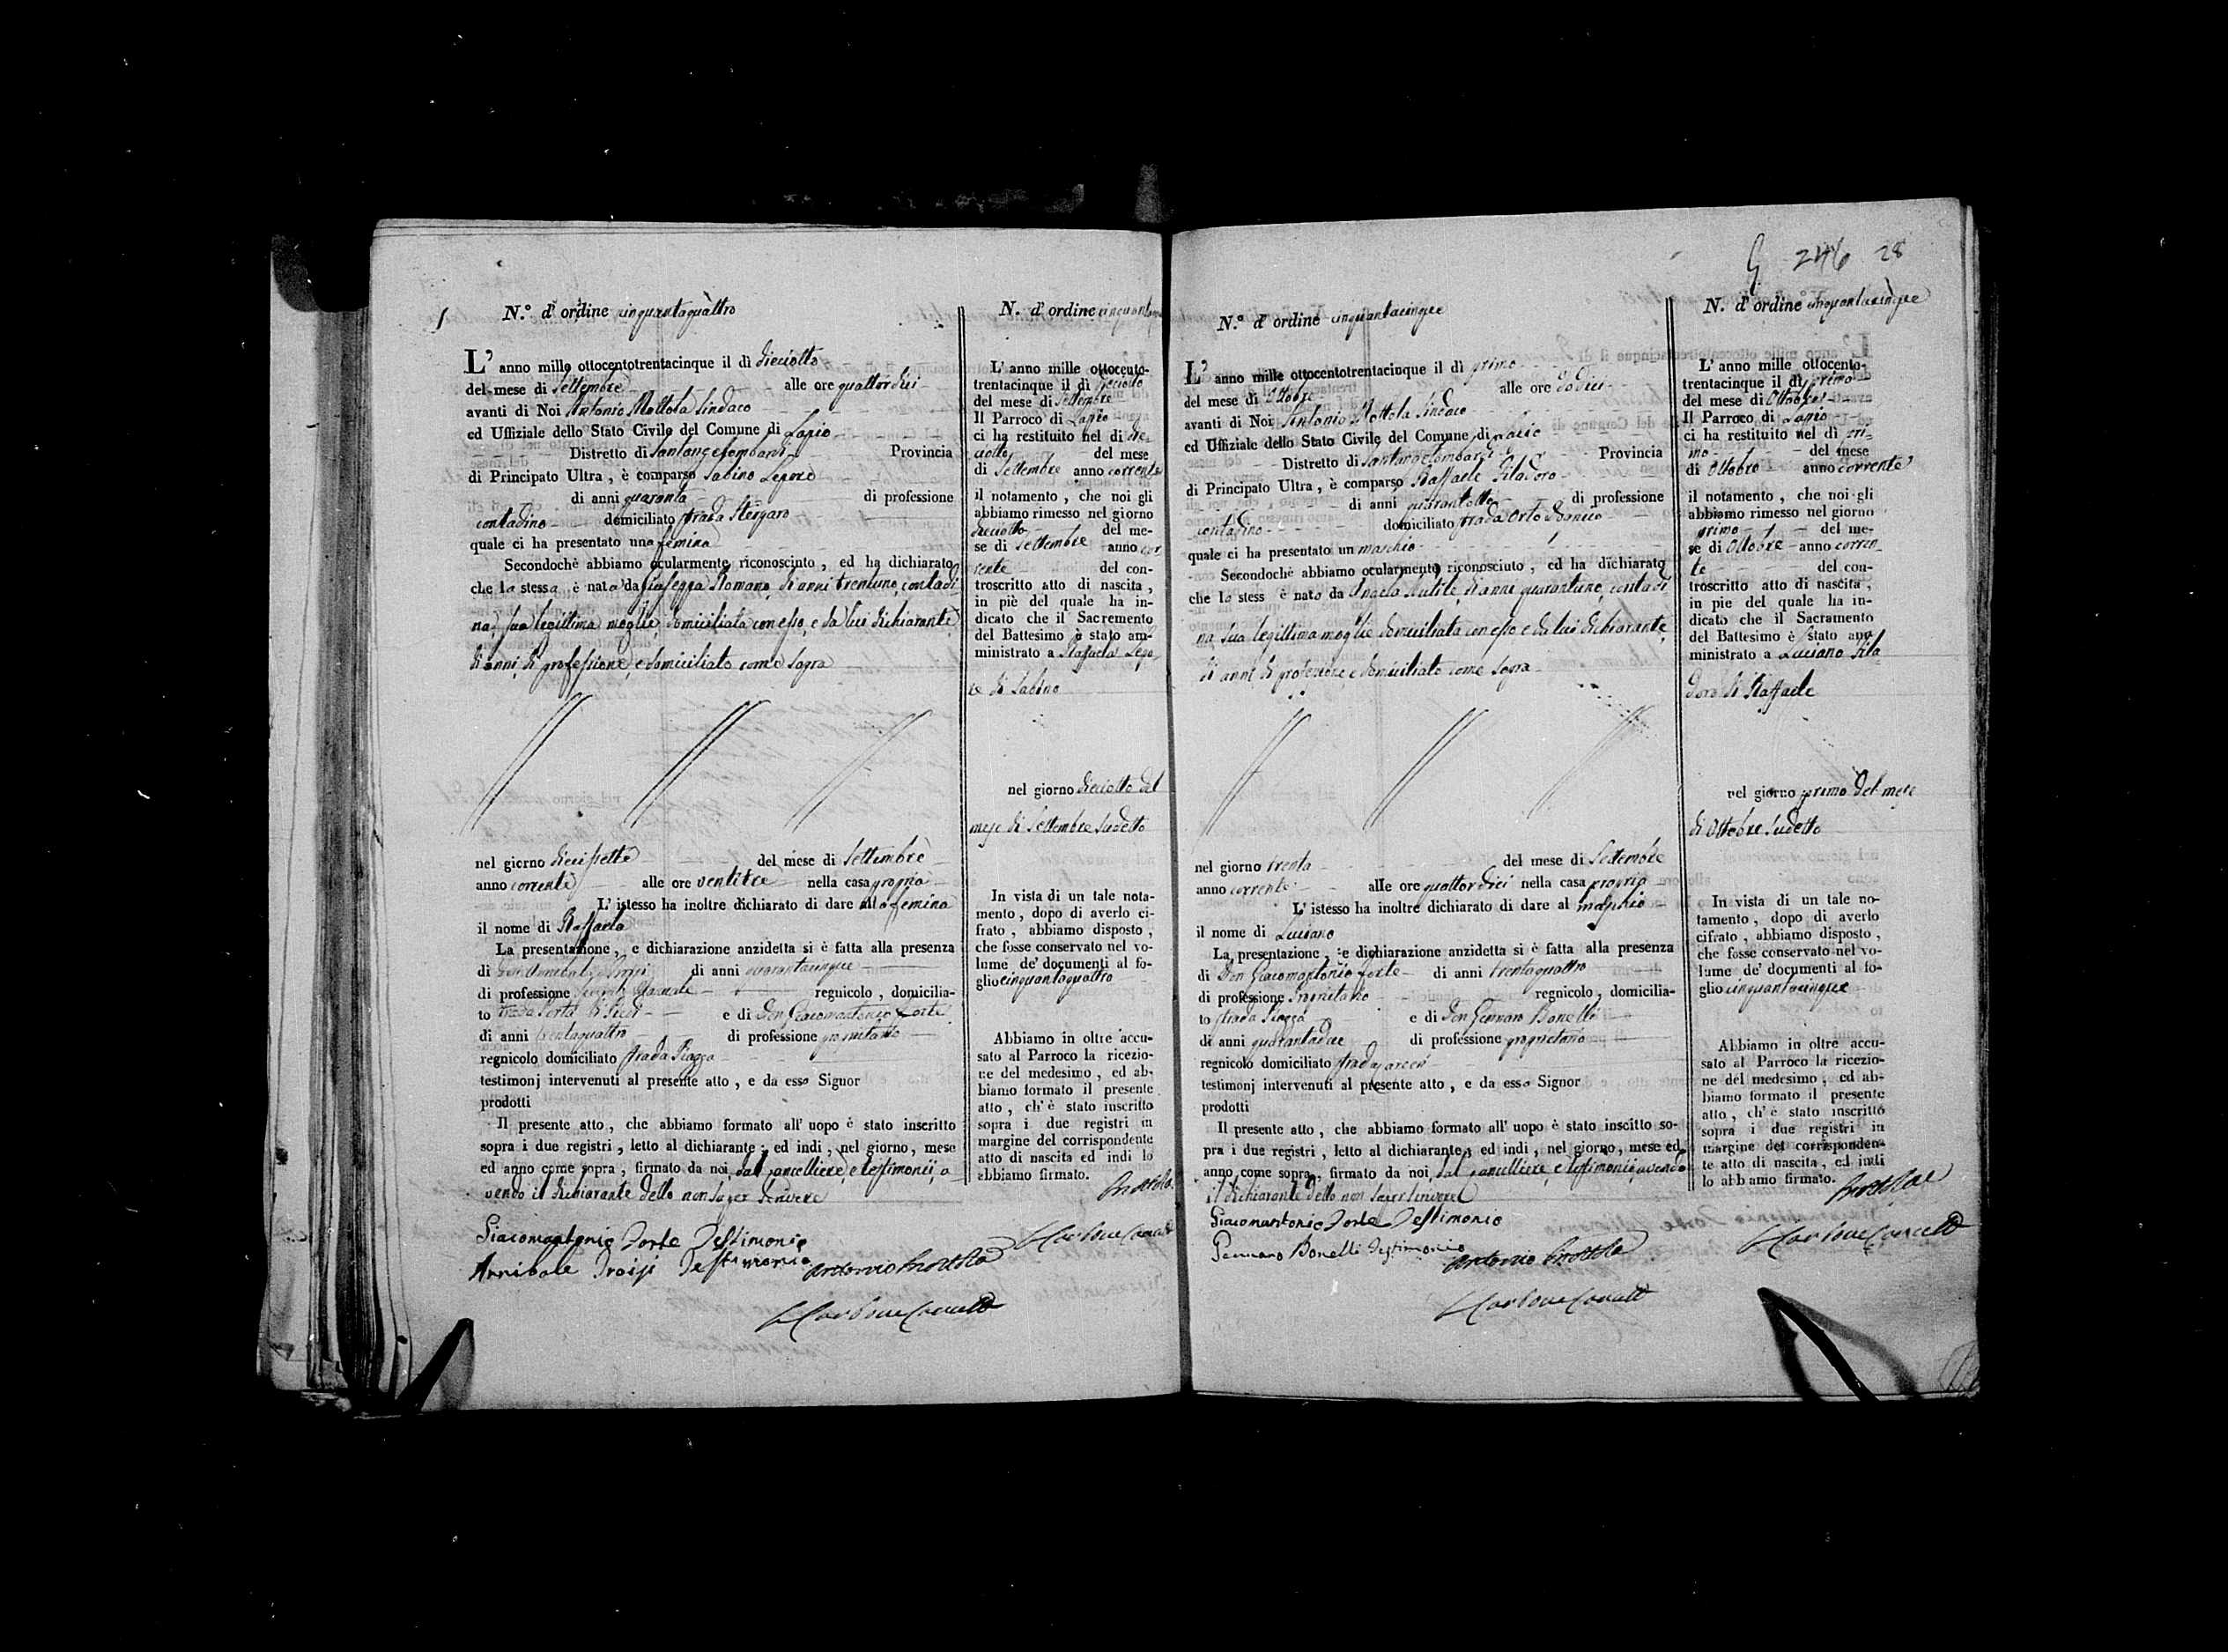 N.º d' ordine cinquantaquattro
L' anno mille ottocentotrentacinque il dì dieciotto
del mese di Settembre alle ore quattordici
avanti di Noi Antonio Mottola Sindaco
ed Uffiziale dello Stato Civile del Comune di Lapio
Distretto di Santangelombardi Provincia
di Principato Ultra, è comparso Sabino Lepore
di anni quaranta di professione
contadino domiciliato strada
quale ci ha presentato una femina
Secondochè abbiamo ocularmente riconosciuto, ed ha dichiarato
che la stessa è nata da Giuseppa Romano, di anni trentuno, contadi
na, sua legittima moglie, domiciliata con esso, e da lui dichiarante
di anni, di professione, e domiciliato come sopra
nel giorno diecissette del mese di Settembre
anno corrente alle ore ventitre nella casa propria
L' istesso ha inoltre dichiarato di dare alla femina
il nome di Raffaela
La presentazione, e dichiarazione anzidetta si è fatta alla presenza
di Don Annibale Troisi di anni quarantacinque
di professione regnicolo, domicilia-
to strada Porta di e di Don Giacomantonio Forte
di anni trentaquattro di professione proprietario
regnicolo domiciliato strada Piazza
testimonj intervenuti al presente atto, e da esso Signor
prodotti
Il presente atto, che abbiamo formato all' uopo è stato inscritto
sopra i due registri, letto al dichiarante; ed indi, nel giorno, mese
ed anno come sopra, firmato da noi, dal cancelliere, e testimonii, a
vendo il dichiarante detto non saper scrivere
Giacomantonio Forte Testimonio
Annibale Troisi Testimonio Antonio Mottola
Carbone Cancell
N. d' ordine
L' anno mille ottocento-
trentacinque il dì dieciotto
del mese di Settembre
Il Parroco di Lapio
ci ha restituito nel dì die
ciotto del mese
di Settembre anno corrente
il notamento, che noi gli
abbiamo rimesso nel giorno
dieciotto del me-
se di Settembre anno cor
rente del con-
troscritto atto di nascita,
in piè del quale ha in-
dicato che il Sacremento
del Battesimo è stato am-
ministrato a Raffaela Lepo
re di Sabino
nel giorno dieciotto del
mese di Settembre sudetto
In vista di un tale nota-
mento, dopo di averlo ci-
frato, abbiamo disposto,
che fosse conservato nel vo-
lume de' documenti al fo-
glio cinquantaquattro
Abbiamo in oltre accu-
sato al Parroco la ricezio-
ne del medesimo, ed ab-
biamo formato il presente
atto, ch' è stato inscritto
sopra i due registri in
margine del corrispondente
atto di nascita ed indi lo
abbiamo firmato.
Mottola
Carbone Cancell
246 28
N.º d' ordine cinquantacinque
L' anno mille ottocentotrentacinque il dì primo
del mese di Ottobre alle ore dodici
avanti di Noi Antonio Mottola Sindaco
ed Uffiziale dello Stato Civile del Comune di Lapio
Distretto di Santangelombardi Provincia
di Principato Ultra, è comparso Raffaele Filadoro
di anni quarantotto di professione
contadino domiciliato strada Orto
quale ci ha presentato un maschio
Secondochè abbiamo ocularmente riconosciuto, ed ha dichiarato
che lo stess è nato da di anni quarantuno, contadi
na sua legittima moglie domiciliata con esso e da lui dichiarante
di anni di professione, e domiciliato come sopra
nel giorno trenta del mese di Settembre
anno corrente alle ore quattordici nella casa propria
L' istesso ha inoltre dichiarato di dare al maschio
il nome di Luciano
La presentazione, e dichiarazione anzidetta si è fatta alla presenza
di Don Giacomantonio Forte di anni trentaquattro
di professione Proprietario regnicolo, domicilia-
to strada Piazza e di Don Gennaro Bonelli
di anni quarantadue di professione proprietario
regnicolo domiciliato strada
testimonj intervenuti al presente atto, e da esso Signor
prodotti
Il presente atto, che abbiamo formato all' uopo è stato inscitto so-
pra i due registri, letto al dichiarante; ed indi, nel giorno, mese ed
anno come sopra, firmato da noi, dal cancelliere, e testimonii avendo
il dichiarante detto non saper scrivere
Giacomantonio Forte Testimonio
Gennaro Bonelli Testimonio Antonio Mottola
Carbone Cancell
N. d' ordine cinquantacinque
L' anno mille ottocento-
trentacinque il dì primo
del mese di Ottobre
Il Parroco di Lapio
ci ha restituito nel dì pri-
mo del mese
di Ottobre anno corrente
il notamento, che noi gli
abbiamo rimesso nel giorno
primo del me-
se di Ottobre anno corren
te del con-
troscritto atto di nascita,
in pie del quale ha in-
dicato che il Sacramento
del Battesimo è stato am-
ministrato a Luciano Fila
doro di Raffaele
nel giorno primo del mese
di Ottobre sudetto
In vista di un tale no-
tamento, dopo di averlo
cifrato, abbiamo disposto,
che fosse conservato nel vo-
lume de' documenti al fo-
glio cinquantacinque
Abbiamo in oltre accu-
sato al Parroco la ricezio-
ne del medesimo, ed ab-
biamo formato il presente
atto, ch' è stato inscritto
sopra i due registri in
margine del corrisponden-
te atto di nascita, ed indi
lo abbiamo firmato.
Mottola
Carbone Cancell